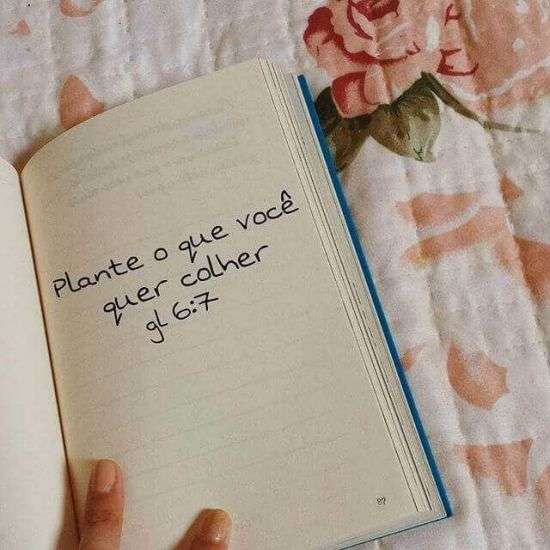 Plante o que você
quer colher
gl 6:7